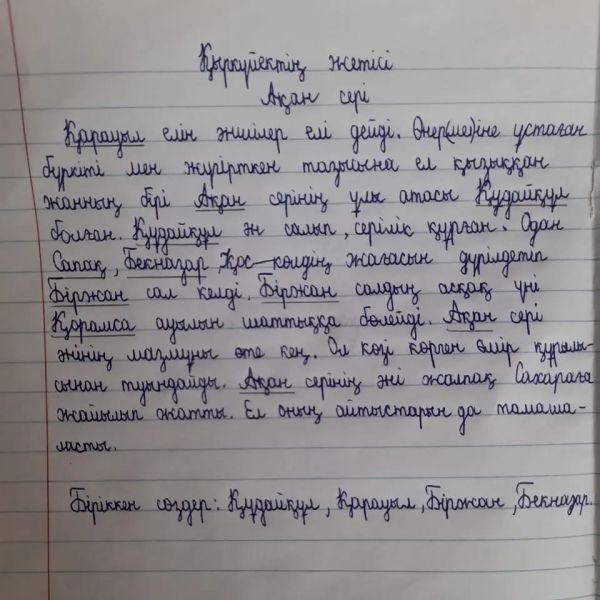 Қыркүйектің жетісі
Ақан сері
Қарауыл елін әншілер елі дейді. Өнер(ше)іне ұстаған
бүркіті мен жүгірткен тазысына ел қызыққан
жанның бірі Ақан серінің ұлы атасы Құдайқұл
болған. Құдайқұл ән салып, серілік құрған. Одан
Сапақ, Бекназар Қос-көлдің жағасын дүрілдетіп
Біржан сал келді. Біржан салдың асқақ үні
Қорамса ауылын шаттыққа бөлейді. Ақан сері
әнінің мазмұны өте кең. Ол көзі көрген өмір құрылы-
сынан туындайды. Ақан серінің әні жалпақ Сахараға
жайылып жатты. Ел оның айтыстарын да тамаша-
ласты.
Біріккен сөздер: Құдайқұл, Қарауыл, Біржан, Бекназар.